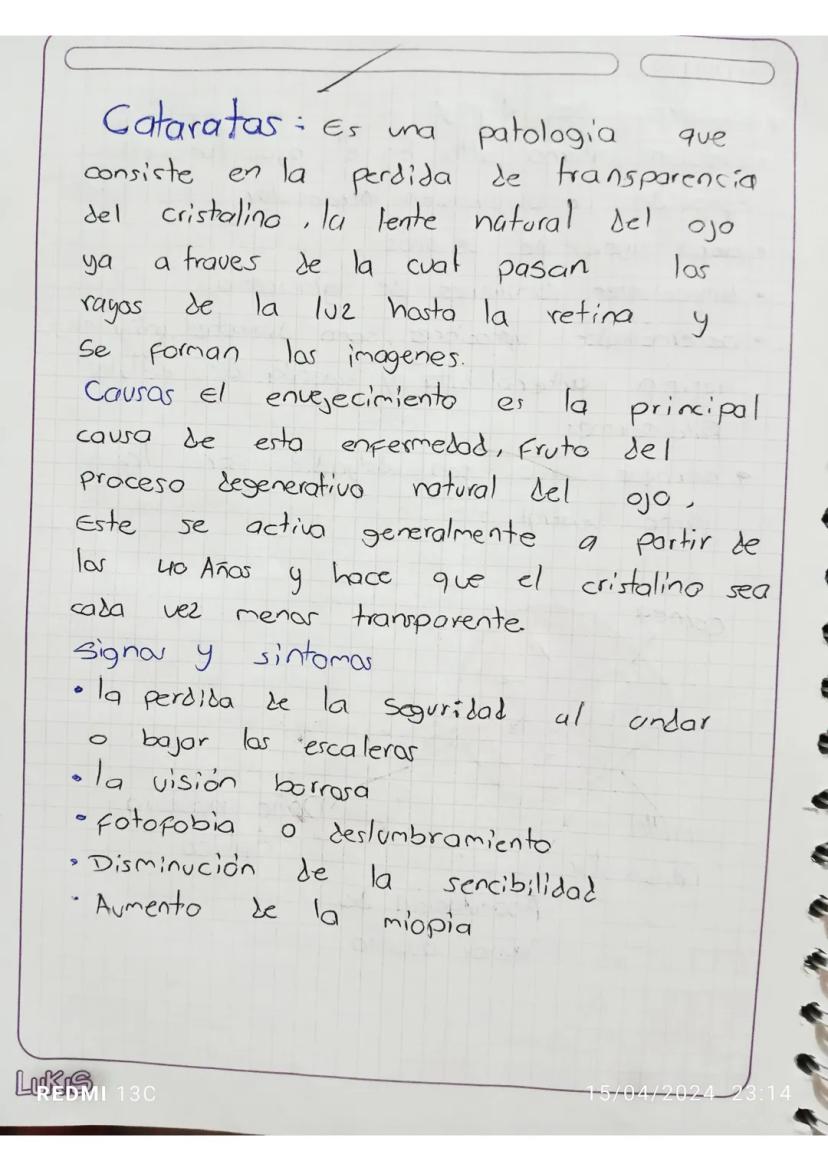 Cataratas: Es una patologia que
consiste en la perdida de transparencia
del cristalino, la lente natural del ojo
ya a traves de la cual pasan los
rayos de la luz hasta la retina y
se forman las imagenes.
Causas El envejecimiento es la principal
causa de esta enfermedad, Fruto del
proceso degenerativo natural del ojo,
Este se activa generalmente a partir de
los 40 Años y hace que el cristalino sea
cada vez menos transparente.
Signos y sintomas
• la perdida de la seguridad al andar
o bajar las escaleras
• la visión borrosa
• fotofobia o deslumbramiento
• Disminución de la sencibilidad
• Aumento de la miopia
LUKAS
REDMI 13C
15/04/2024 23:14